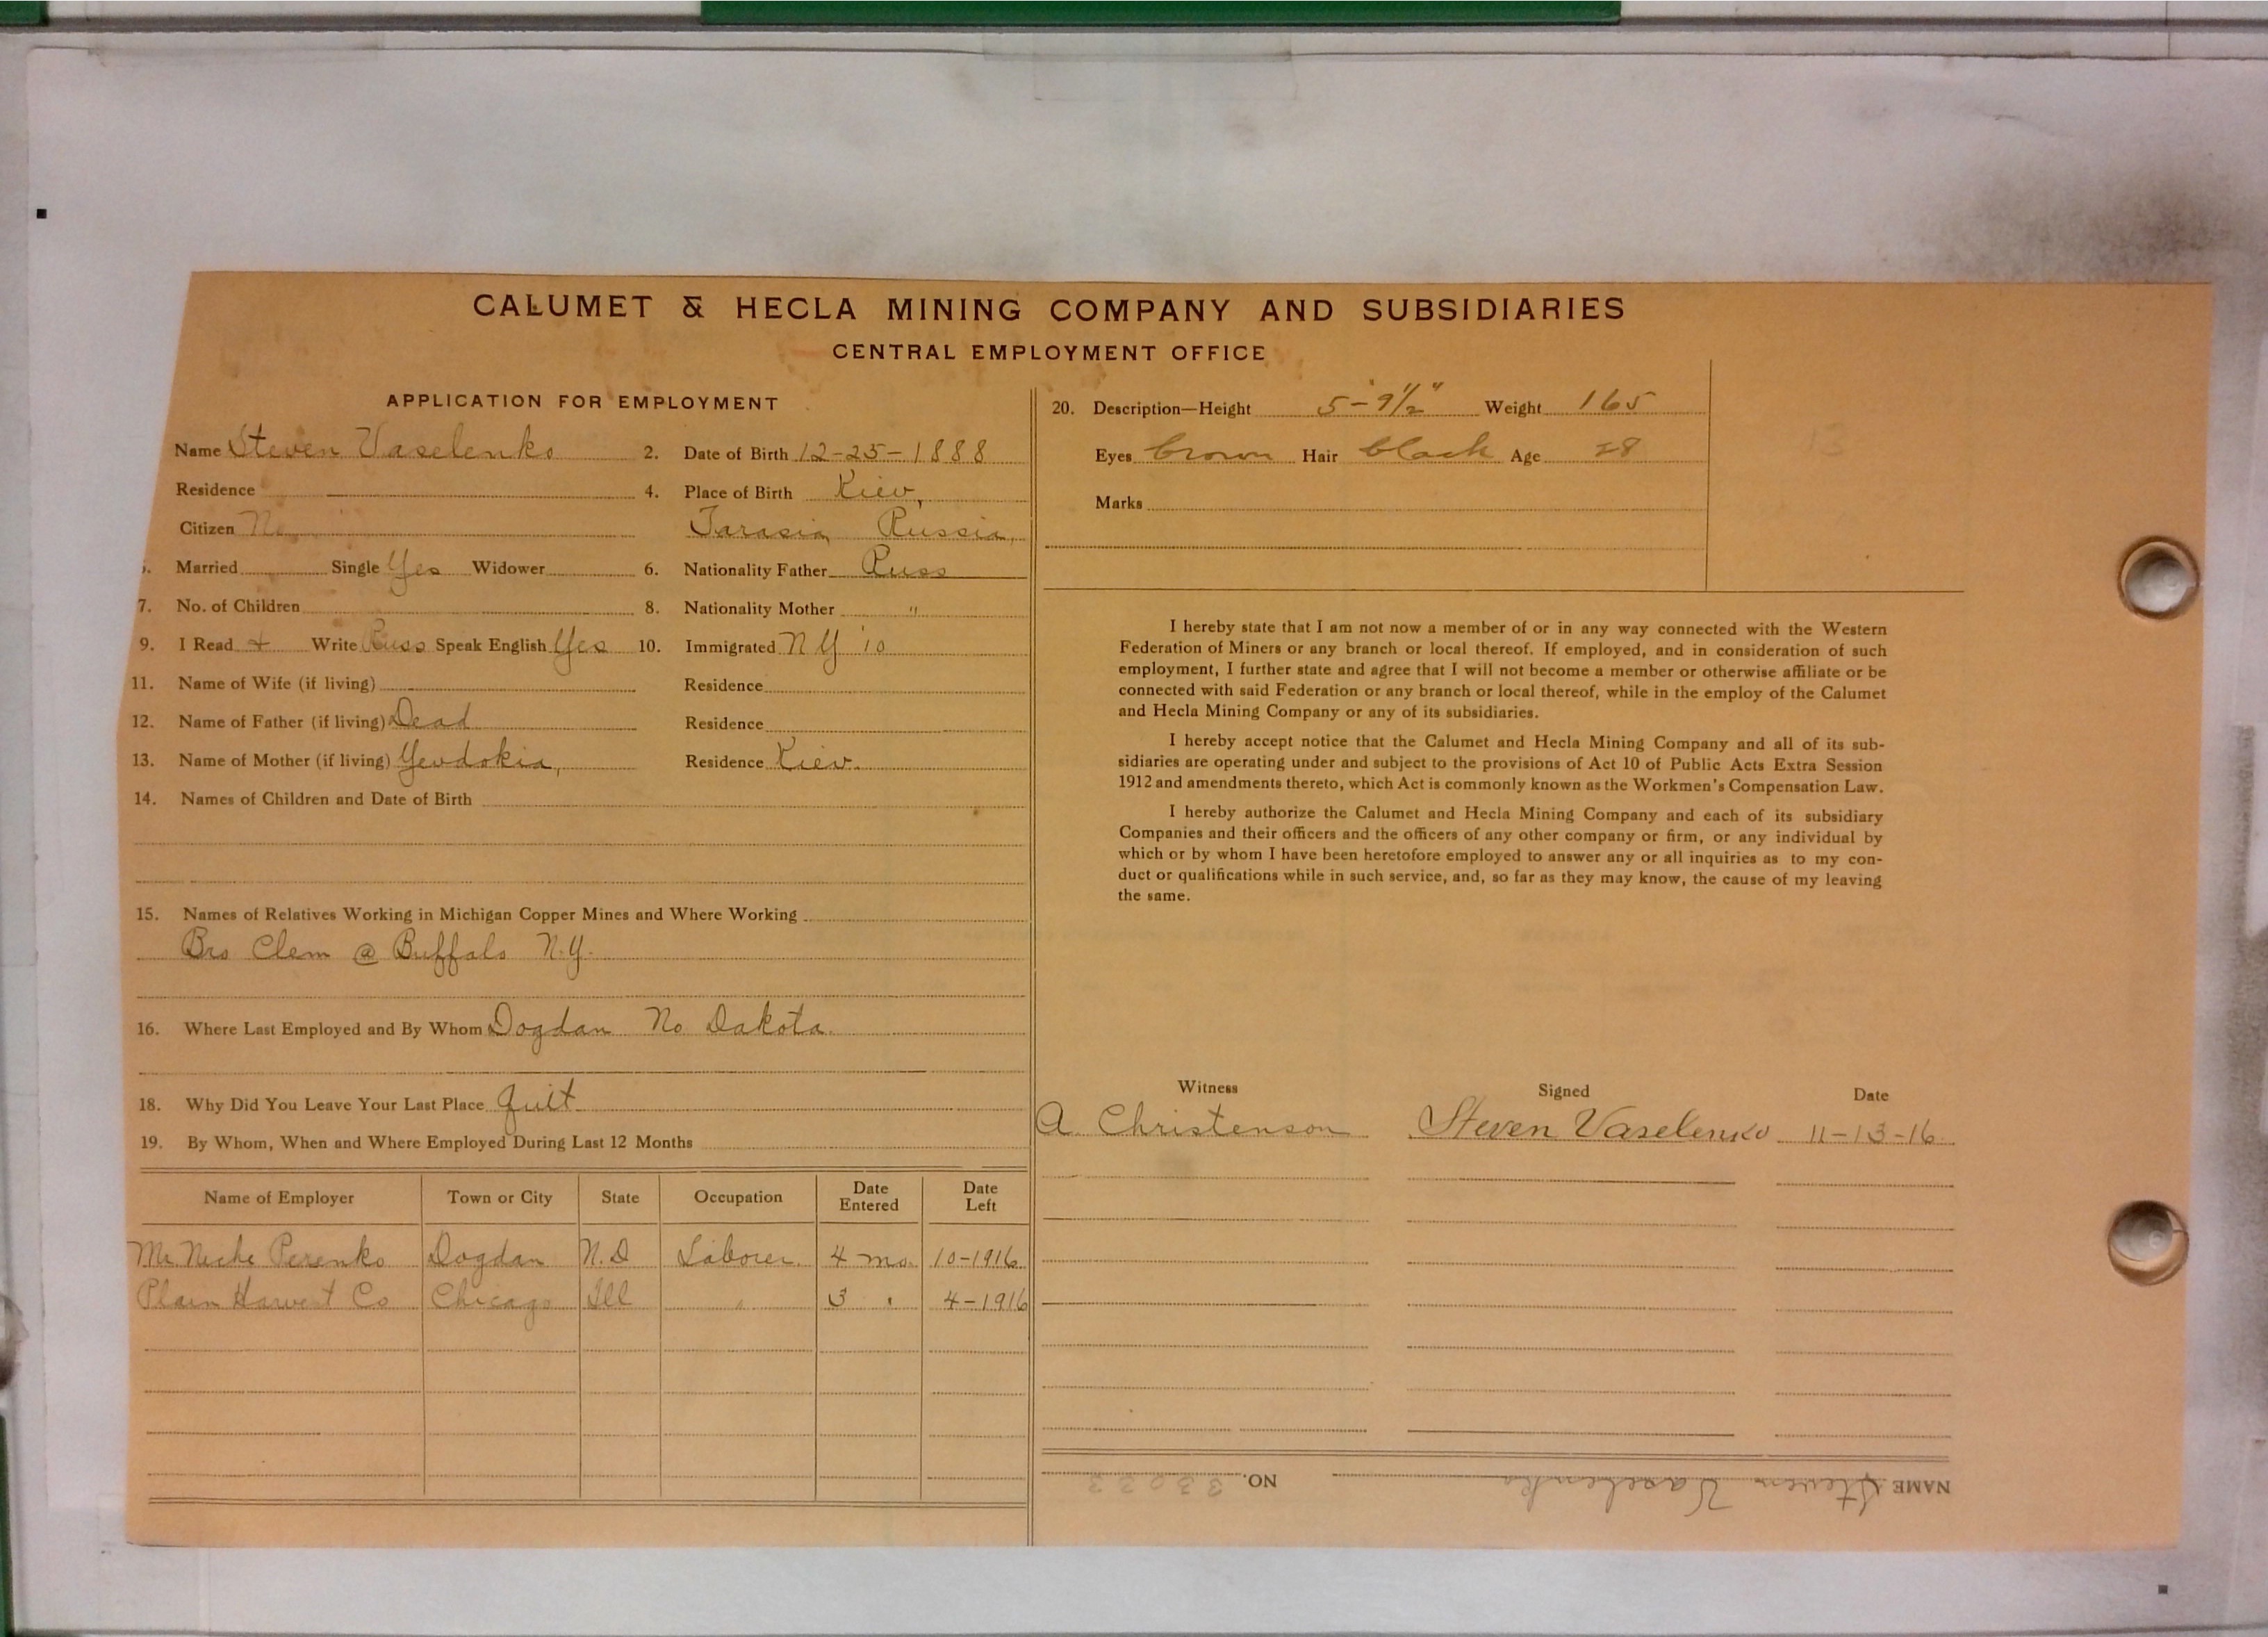 CALUMET & HECLA MINING COMPANY AND SUBSIDIARIES
CENTRAL EMPLOYMENT OFFICE
APPLICATION FOR EMPLOYMENT
Name Steven Vaselenko 2. Date of Birth 12-25-1888
Residence 4. Place of Birth Kiev,
Citizen No Tarasia Russia
Married Single Yes Widower 6. Nationality Father Russ
7. No. of Children 8. Nationality Mother "
9. I Read + Write Russ Speak English Yes 10. Immigrated N Y '10
11. Name of Wife (if living) Residence
12. Name of Father (if living) Dead Residence
13. Name of Mother (if living) Yevdokia, Residence Kiev.
14. Names of Children and Date of Birth
15. Names of Relatives Working in Michigan Copper Mines and Where Working
Bro Clem @ Buffalo N.Y.
16. Where Last Employed and By Whom Dogdan No Dakota.
18. Why Did You Leave Your Last Place Quit
19. By Whom, When and Where Employed During Last 12 Months
Name of Employer Town or City State Occupation Date Entered Date Left
Mr Neche Perenko Dogdan N.D Laborer. 4 mo. 10-1916
Plain Harvest Co Chicago Ill " 3 " 4-1916
20. Description—Height 5'-9½" Weight 165
Eyes brown Hair black Age 28
Marks
I hereby state that I am not now a member of or in any way connected with the Western
Federation of Miners or any branch or local thereof. If employed, and in consideration of such
employment, I further state and agree that I will not become a member or otherwise affiliate or be
connected with said Federation or any branch or local thereof, while in the employ of the Calumet
and Hecla Mining Company or any of its subsidiaries.
I hereby accept notice that the Calumet and Hecla Mining Company and all of its sub-
sidiaries are operating under and subject to the provisions of Act 10 of Public Acts Extra Session
1912 and amendments thereto, which Act is commonly known as the Workmen's Compensation Law.
I hereby authorize the Calumet and Hecla Mining Company and each of its subsidiary
Companies and their officers and the officers of any other company or firm, or any individual by
which or by whom I have been heretofore employed to answer any or all inquiries as to my con-
duct or qualifications while in such service, and, so far as they may know, the cause of my leaving
the same.
Witness Signed Date
A Christenson Steven Vaselenko 11-13-16
NAME Steven Vaselenko NO. 33033